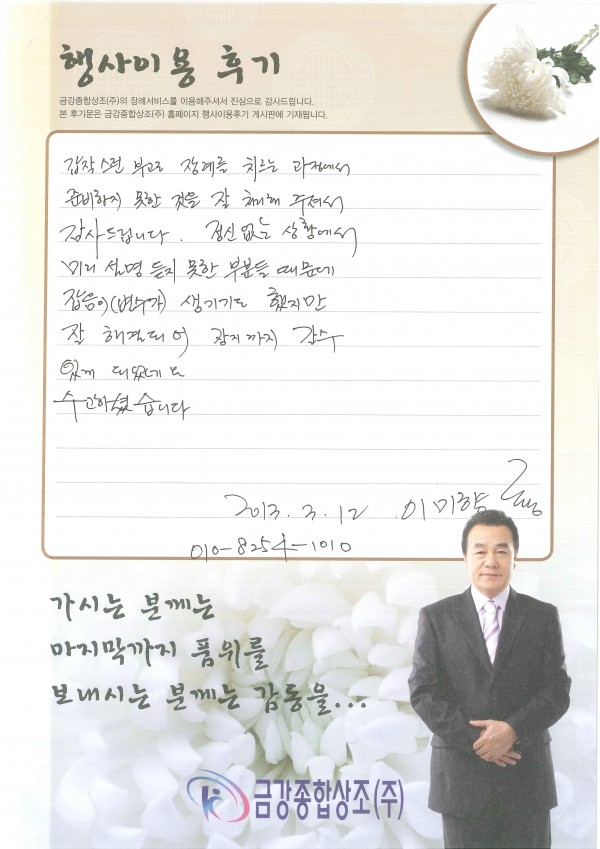 행사이용 후기
금강종합상조(주)의 장례서비스를 이용해주셔서 진심으로 감사드립니다.
본 후기문은 금강종합상조(주) 홈페이지 행사이용후기 게시판에 기재됩니다.
갑작스런 부고로 장례를 치르는 과정에서
준비하지 못한 것을 잘 해 주셔서
감사드립니다. 정신없는 상황에서
미리 설명 듣지 못한 부분들 때문에
잡음이(변수가) 생기기도 했지만
잘 해결되어 장지까지 갈수
있게 되었네요
수고하셨습니다
2013. 3. 12 이미향
010-8254-1010
가시는 분께는
마지막까지 품위를
보내시는 분께는 감동을...
금강종합상조(주)